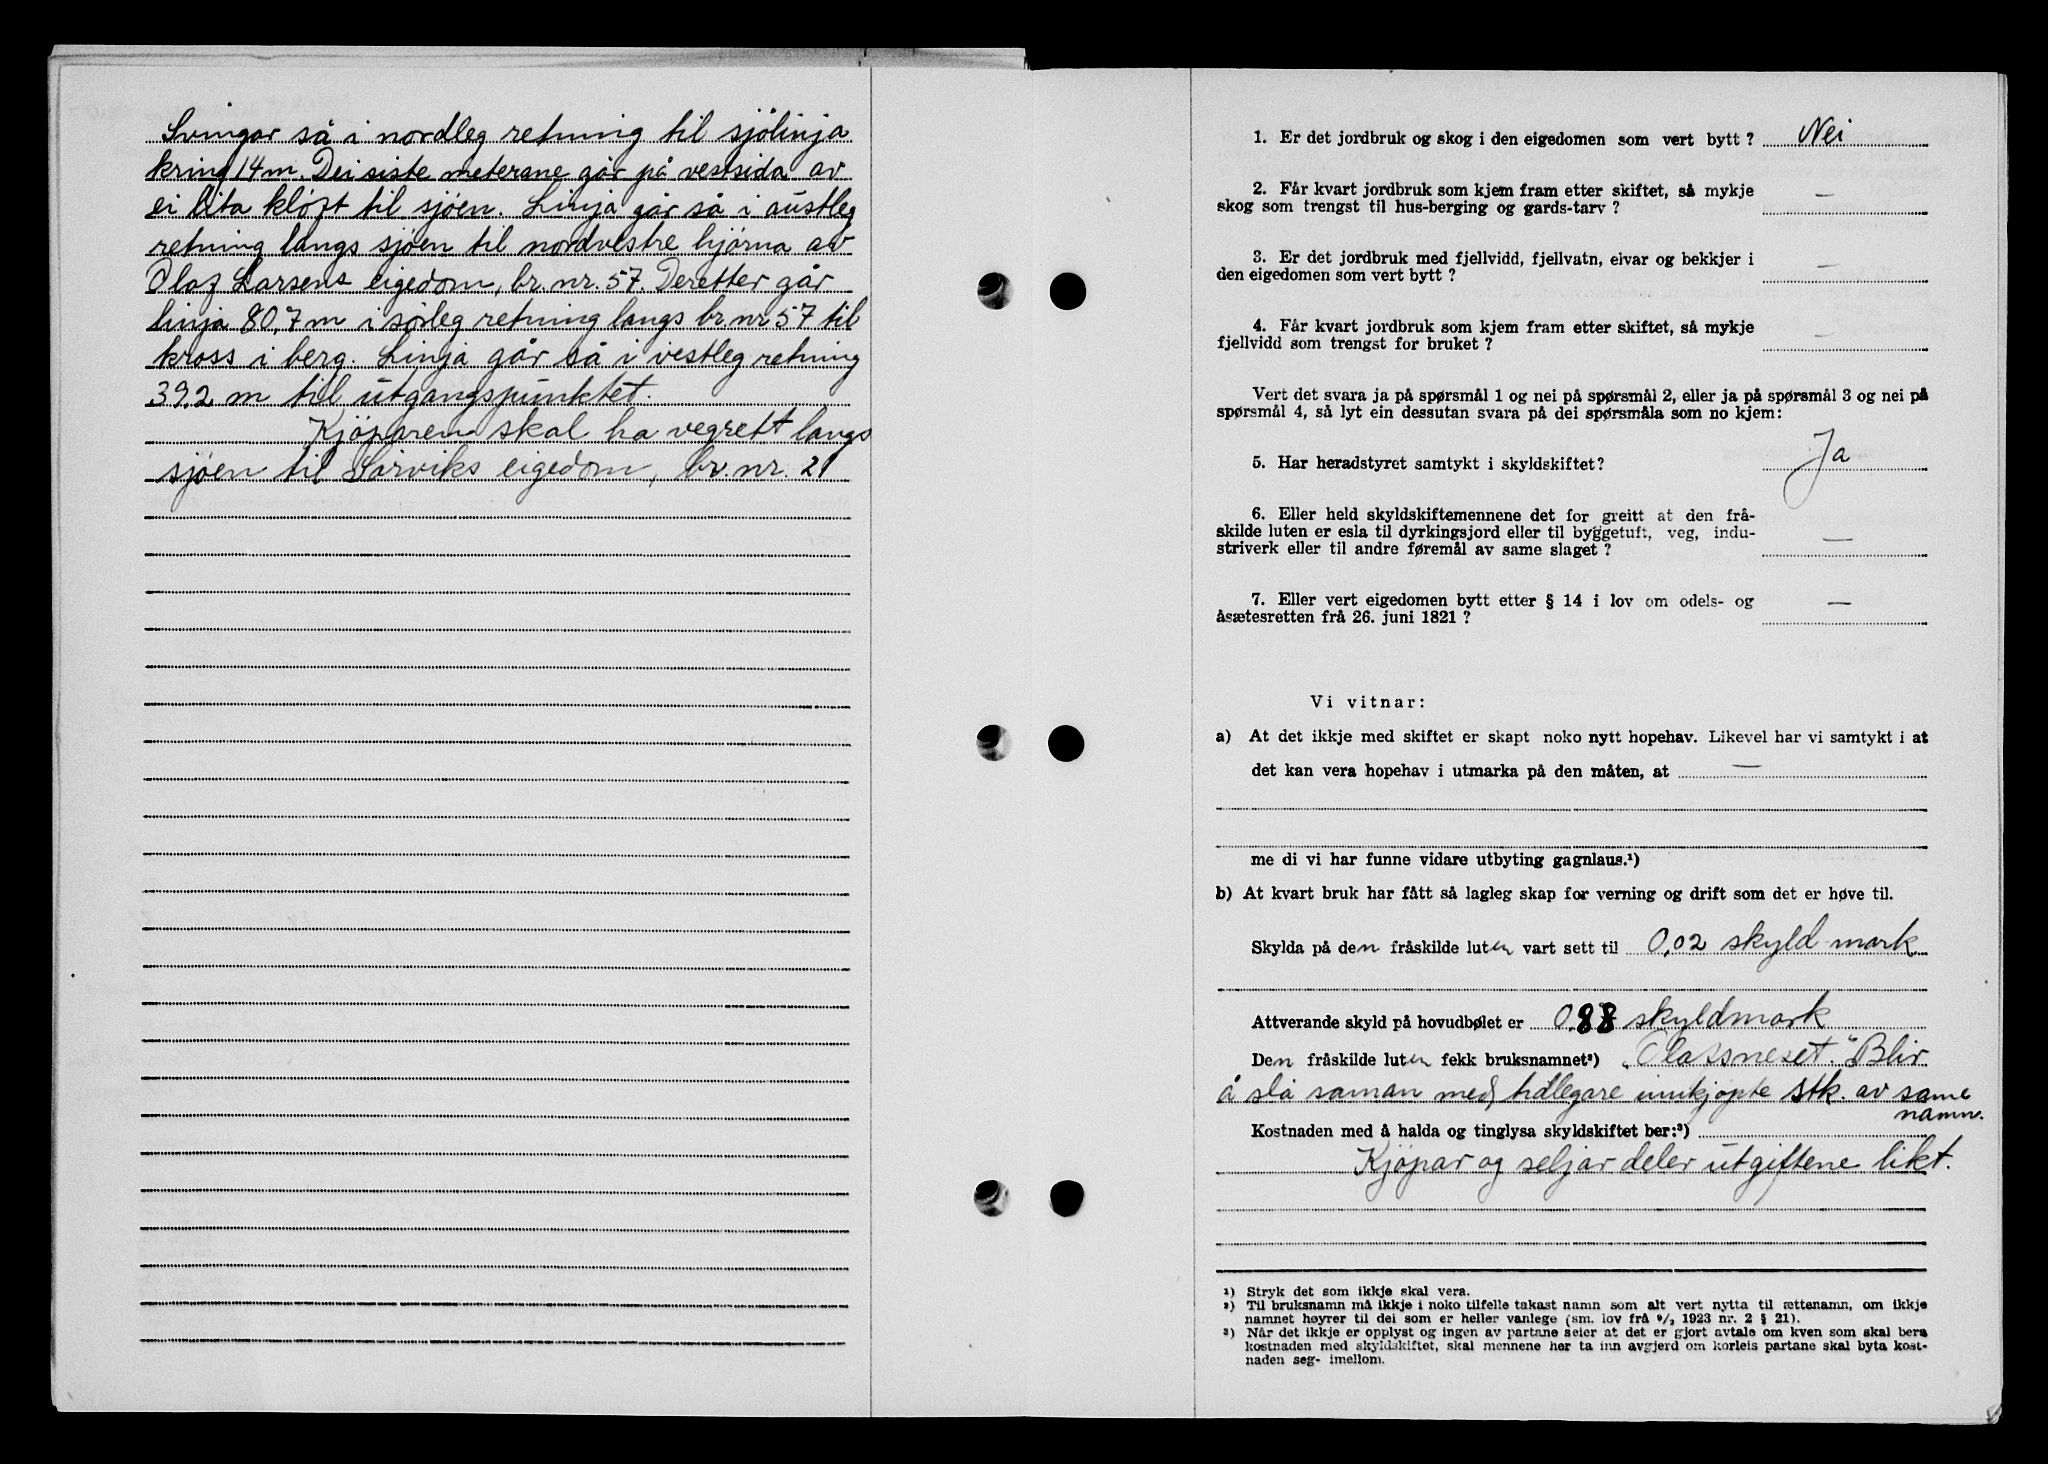 Svingar så i nordleg retning til sjölinja
kring 14 m. Dei siste meterane går på vestsida av
ei lita klöft til sjöen. Linja går så i austleg
retning langs sjöen til nordvestre hjörna av
Olaf Larsens eigedom, br. nr. 57. Deretter går
linja 80,7 m i sörleg retning langs br. nr 57 til
kross i berg. Linja går så i vestleg retning
39,2 m til utgangspunktet.
Kjöparen skal ha vegrett langs
sjöen til Sörviks eigedom, br. nr. 21
1. Er det jordbruk og skog i den eigedomen som vert bytt ? Nei
2. Får kvart jordbruk som kjem fram etter skiftet, så mykje
skog som trengst til hus-berging og gards-tarv ? —
3. Er det jordbruk med fjellvidd, fjellvatn, elvar og bekkjer i
den eigedomen som vert bytt ? —
4. Får kvart jordbruk som kjem fram etter skiftet, så mykje
fjellvidd som trengst for bruket ? —
Vert det svara ja på spørsmål 1 og nei på spørsmål 2, eller ja på spørsmål 3 og nei på
spørsmål 4, så lyt ein dessutan svara på dei spørsmåla som no kjem:
5. Har heradstyret samtykt i skyldskiftet? Ja
6. Eller held skyldskiftemennene det for greitt at den frå-
skilde luten er esla til dyrkingsjord eller til byggetuft, veg, indu-
striverk eller til andre føremål av same slaget ? —
7. Eller vert eigedomen bytt etter § 14 i lov om odels- og
åsætesretten frå 26. juni 1821 ? —
Vi vitnar:
a) At det ikkje med skiftet er skapt noko nytt hopehav. Likevel har vi samtykt i at
det kan vera hopehav i utmarka på den måten, at —
me di vi har funne vidare utbyting gagnlaus.¹)
b) At kvart bruk har fått så lagleg skap for verning og drift som det er høve til.
Skylda på den fråskilde luten vart sett til 0,02 skyld-mark
Attverande skyld på hovudbølet er 0,88 skyldmark
Den fråskilde luten fekk bruksnamnet²) "Olafsneset." Blir
å slå saman med tidlegare innkjöpte stk. av same
namn.
Kostnaden med å halda og tinglysa skyldskiftet ber:³)
Kjöpar og seljar deler utgiftene likt.
¹) Stryk det som ikkje skal vera.
²) Til bruksnamn må ikkje i noko tilfelle takast namn som alt vert nytta til ættenamn, om ikkje
namnet høyrer til dei som er heller vanlege (sm. lov frå ⁹/₂ 1923 nr. 2 § 21).
³) Når det ikkje er opplyst og ingen av partane seier at det er gjort avtale om kven som skal bera
kostnaden med skyldskiftet, skal mennene her ta inn avgjerd om korleis partane skal byta kost-
naden seg- imellom.